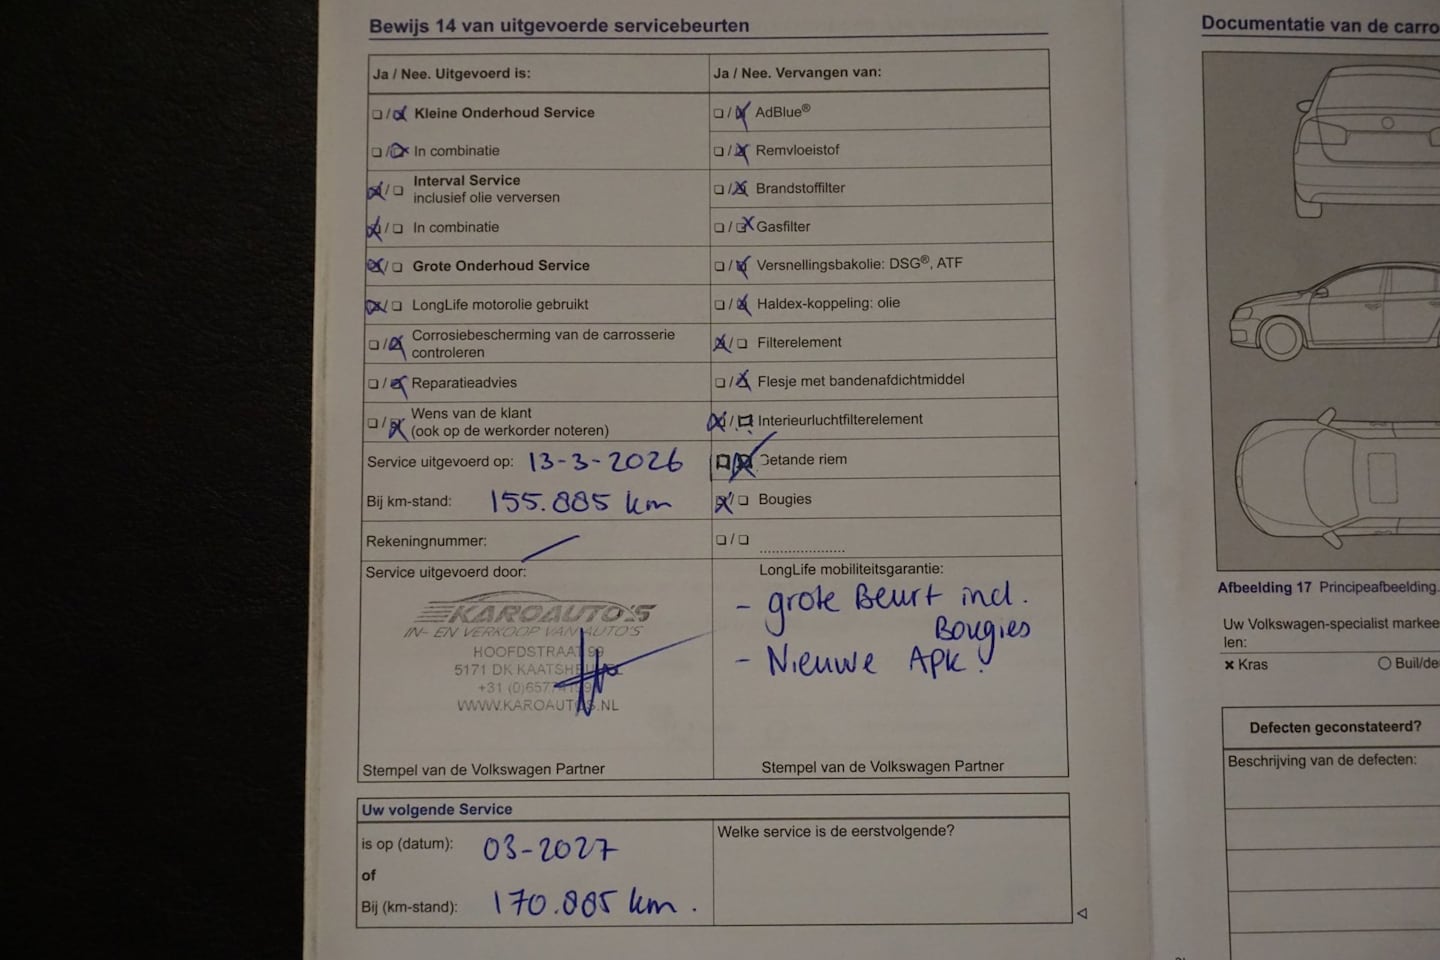 Bewijs 14 van uitgevoerde servicebeurten
Ja / Nee. Uitgevoerd is:
Kleine Onderhoud Service
In combinatie
Interval Service
inclusief olie verversen
In combinatie
Grote Onderhoud Service
LongLife motorolie gebruikt
Corrosiebescherming van de carrosserie
controleren
Reparatieadvies
Wens van de klant
(ook op de werkorder noteren)
Service uitgevoerd op: 13-3-2026
Bij km-stand: 155.885 km
Rekeningnummer:
Service uitgevoerd door:
KAROAUTO'S
IN- EN VERKOOP VAN AUTO'S
HOOFDSTRAAT 99
5171 DK
+31
WWW.KAROAUTOS.NL
Stempel van de Volkswagen Partner
Ja / Nee. Vervangen van:
AdBlue®
Remvloeistof
Brandstoffilter
Gasfilter
Versnellingsbakolie: DSG®, ATF
Haldex-koppeling: olie
Filterelement
Flesje met bandenafdichtmiddel
Interieurluchtfilterelement
Getande riem
Bougies
LongLife mobiliteitsgarantie:
- grote Beurt incl.
Bougies
- Nieuwe APK!
Stempel van de Volkswagen Partner
Uw volgende Service
is op (datum): 03-2027
of
Bij (km-stand): 170.885 km.
Welke service is de eerstvolgende?
Documentatie van de carro
Afbeelding 17 Principeafbeelding.
Uw Volkswagen-specialist markee
len:
Kras
Buil/de
Defecten geconstateerd?
Beschrijving van de defecten: